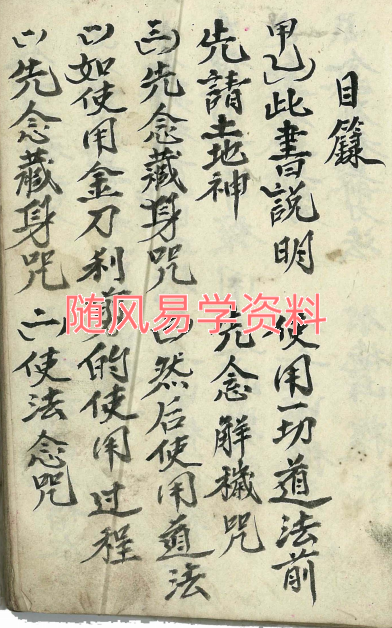 目籙
甲乙)此書說明 使用一切道法前
先請土地神 先念解穢咒
三)先念藏身咒 然后使用道法
如使用金刀利剪的使用过程
(一)先念藏身咒 (二)使法念咒
随风易学资料